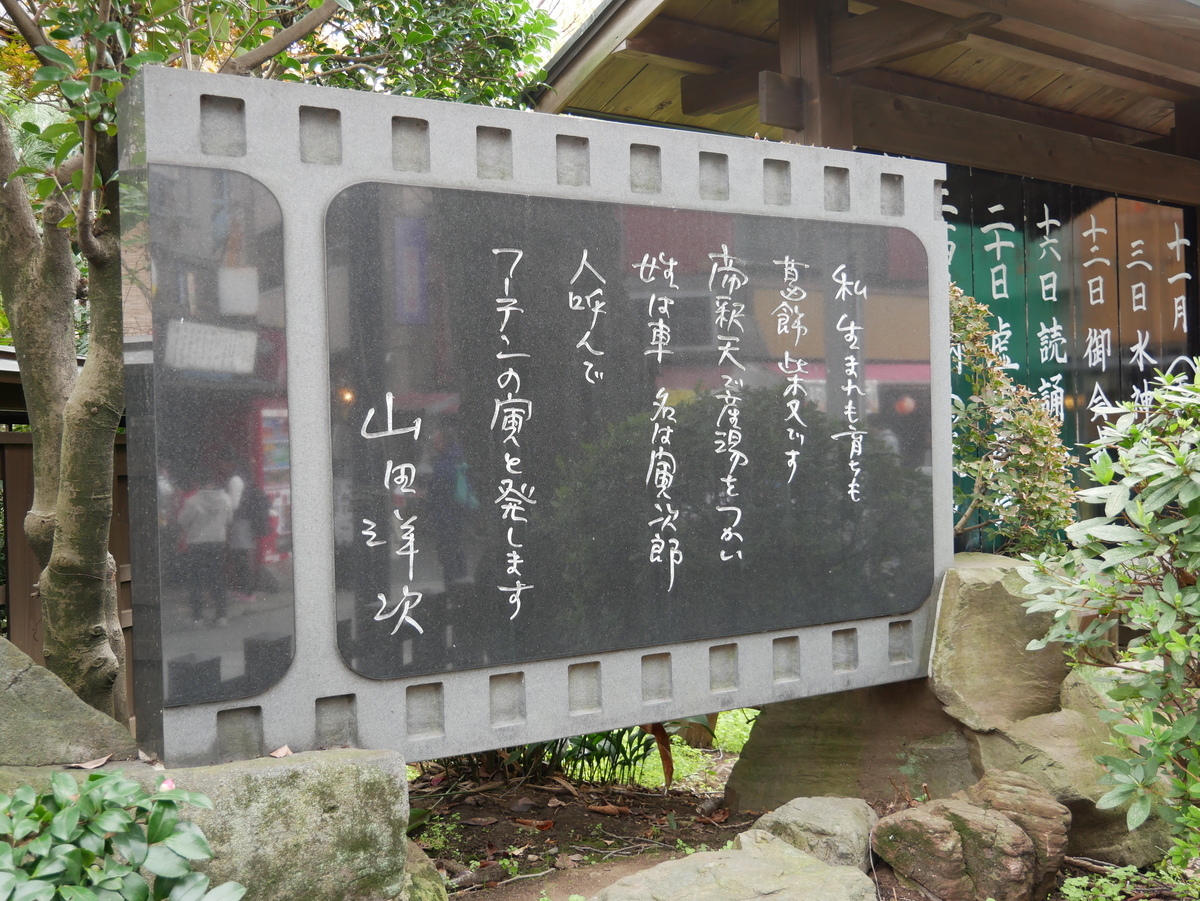 私生まれも育ちも
葛飾柴又です
帝釈天で産湯をつかい
姓は車 名は寅次郎
人呼んで
フーテンの寅と発します
山田洋次
十一月
三日水神
十二日御会
十六日読誦
二十日虚